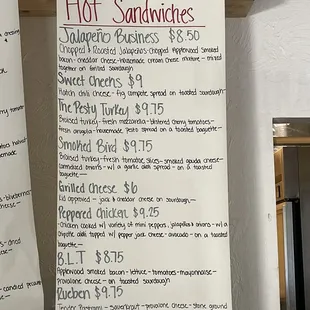 Hot Sandwiches
Jalapeño Business $8.50
Chopped & Roasted Jalapeños-chopped Applewood smoked
bacon-cheddar cheese-homemade cream cheese mixture - melted
together on grilled sourdough
Sweet Cheeks $9
Hatch chili cheese - fig compote spread on toasted sourdough-
The Pesty Turkey $9.75
Braised turkey-fresh mozzarella-blistered cherry tomatoes-
fresh arugula-homemade pesto spread on a toasted baguette-
Smoked Bird $9.75
Braised turkey-fresh tomato slices-smoked gouda cheese-
carmelized onions-w/ a garlic aioli spread - on toasted
baguette-
Grilled Cheese $6
Kid approved - jack & cheddar cheese on sourdough-
Peppered Chicken $9.25
-Chicken cooked w/ variety of mini peppers, jalapeños & onions - w/ a
chipotle aioli topped w/ pepper jack cheese-avocado - on a toasted
baguette-
B.L.T $8.75
Applewood smoked bacon-lettuce-tomatoes-mayonnaise-
provolone cheese on toasted sourdough-
Rueben $9.75
Tender Pastrami - sauerkraut-provolone cheese-stone ground